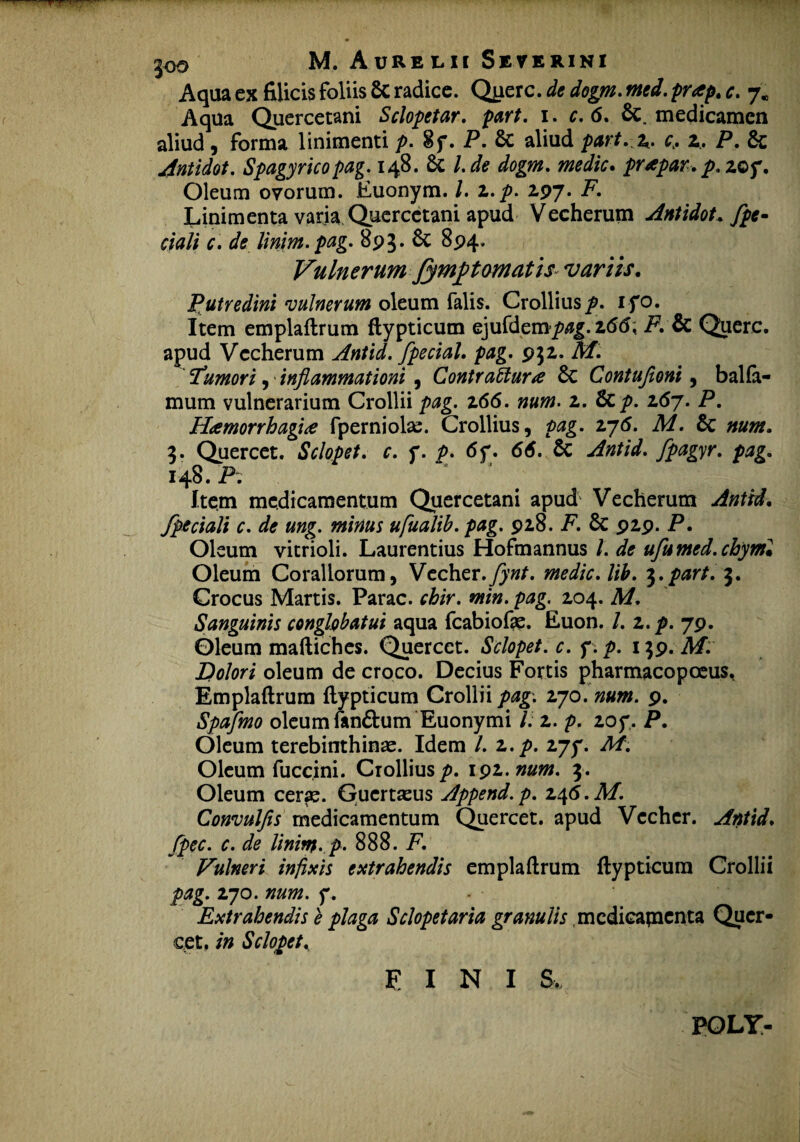 300 M. AURELII SEVERINI
Aqua ex filicis foliis & radice. Querc. de dogm. med. præp. c. 7.
Aqua Quercetani Sclopetar. part. 1. c. 6. &. medicamen
aliud, forma linimenti p. 85. P. & aliud part. 2. c. 2. P. &
Antidot. Spagyrico pag. 148. & l. de dogm. medic. præpar. p. 205.
Oleum ovorum. Euonym. l. 2. p. 297. F.
Linimenta varia Quercetani apud Vecherum Antidot. ſpe-
ciali c. de linim. pag. 893. & 894.
Vulnerum ſymptomatis variis.
Putredini vulnerum oleum ſalis. Crollius p. 150.
Item emplaſtrum ſtypticum ejuſdem pag. 266. F. & Querc.
apud Vecherum Antid. ſpecial. pag. 932. M.
Tumori, inflammationi, Contracturæ & Contuſioni, balſa-
mum vulnerarium Crollii pag. 266. num. 2. & p. 267. P.
Hæmorrhagiæ ſperniolæ. Crollius, pag. 276. M. & num.
3. Quercet. Sclopet. c. 5. p. 65. 66. & Antid. ſpagyr. pag.
148. P.
Item medicamentum Quercetani apud Vecherum Antid.
ſpeciali c. de ung. minus uſualib. pag. 928. F. & 929. P.
Oleum vitrioli. Laurentius Hofmannus l. de uſu med. chym.
Oleum Corallorum, Vecher. ſynt. medic. lib. 3. part. 3.
Crocus Martis. Parac. chir. min. pag. 204. M.
Sanguinis conglobatui aqua ſcabioſæ. Euon. l. 2. p. 79.
Oleum maſtiches. Quercet. Sclopet. c. 5. p. 139. M.
Dolori oleum de croco. Decius Fortis pharmacopœus,
Emplaſtrum ſtypticum Crollii pag. 270. num. 9.
Spaſmo oleum ſanctum Euonymi l. 2. p. 205. P.
Oleum terebinthinæ. Idem l. 2. p. 275. M.
Oleum ſuccini. Crollius p. 192. num. 3.
Oleum ceræ. Guertæus Append. p. 246. M.
Convulſis medicamentum Quercet. apud Vecher. Antid.
ſpec. c. de linim. p. 888. F.
Vulneri infixis extrahendis emplaſtrum ſtypticum Crollii
pag. 270. num. 5.
Extrahendis è plaga Sclopetaria granulis medicamenta Quer-
cet. in Sclopet.
FINIS.
POLY-